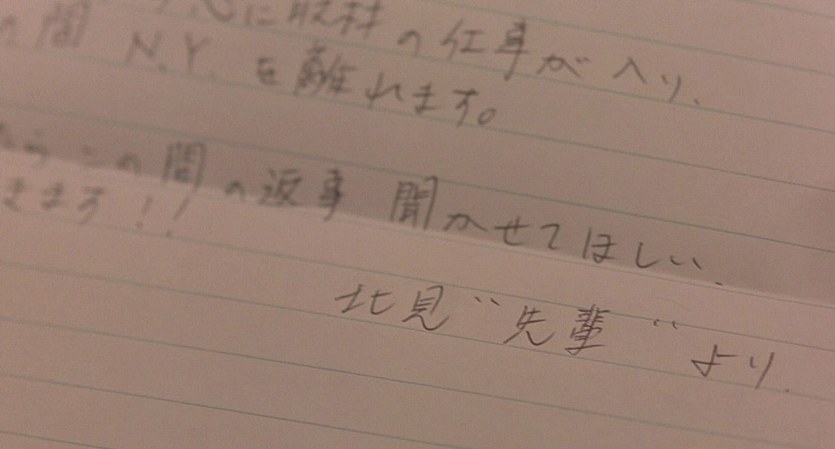 に取材の仕事が入り、
間 N.Y. を離れます。
この間の返事 聞かせてほしい、
きます!!
北見〝先輩〟より、